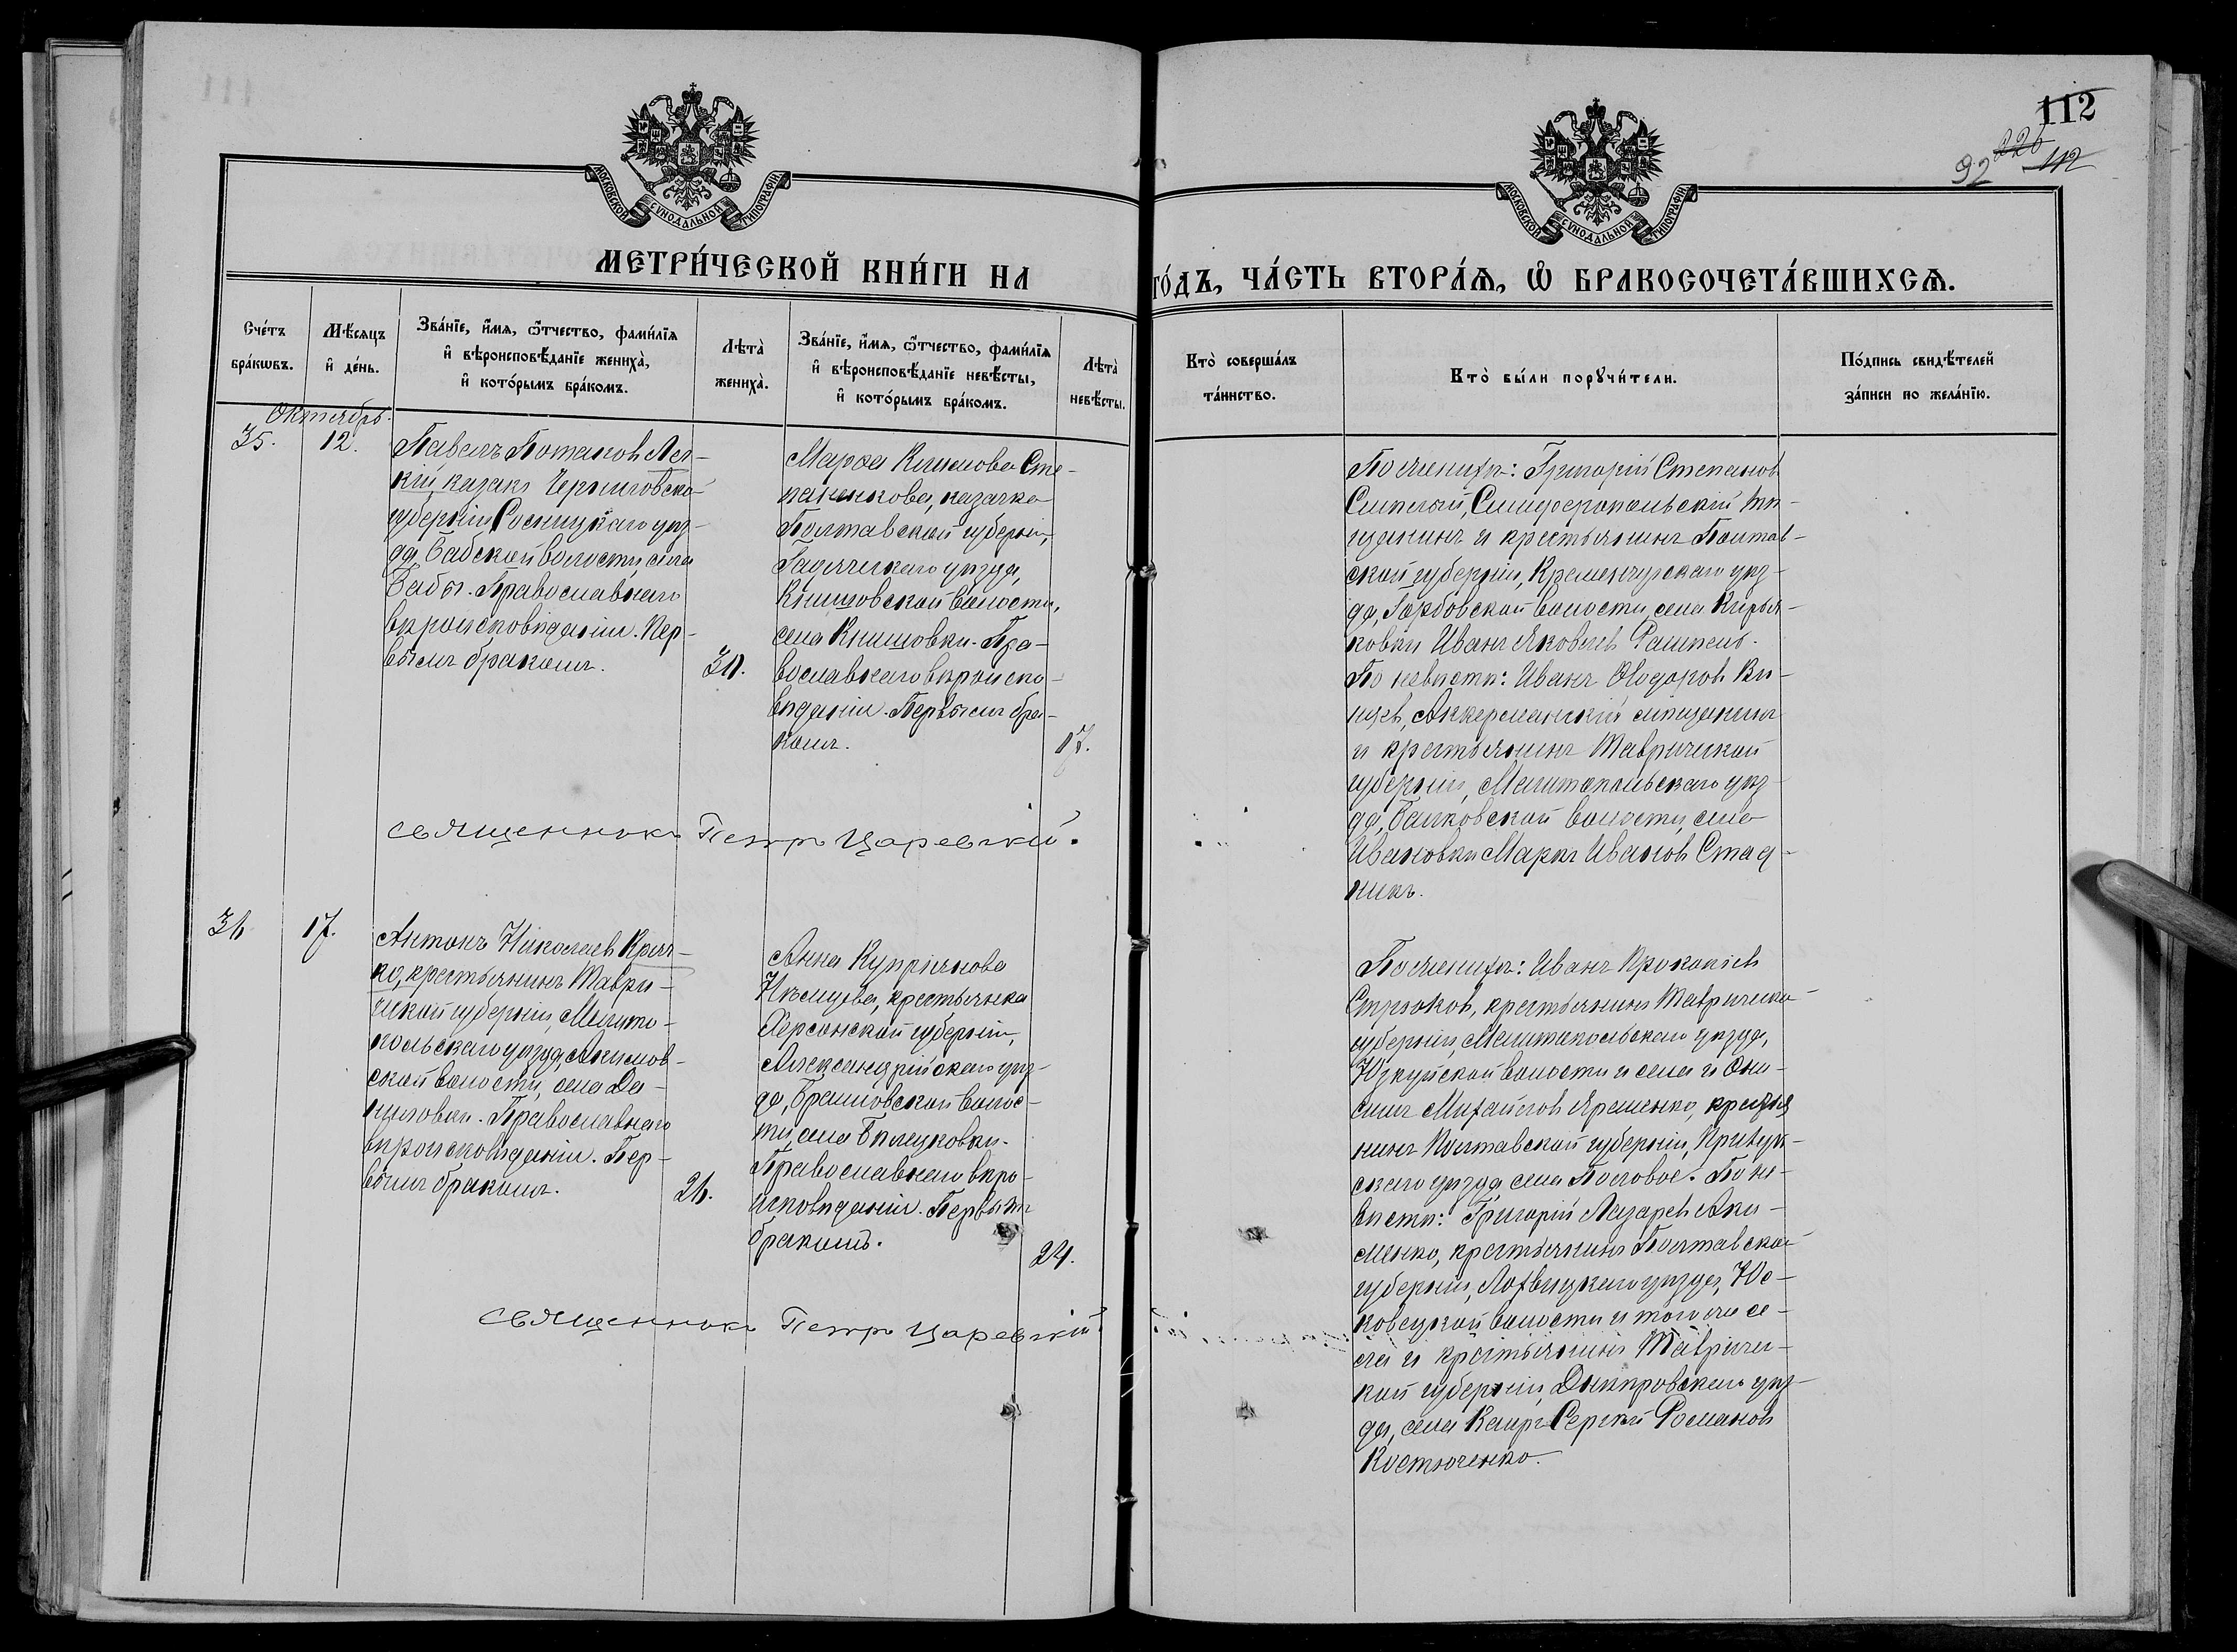 112
226
92 112
МОСКОВСКОЙ СѴНОДАЛЬНОЙ ТИПОГРАФІИ.
МОСКОВСКОЙ СѴНОДАЛЬНОЙ ТИПОГРАФІИ.
МЕТРИ́ЧЕСКОЙ КНИ́ГИ НА
ГО́ДЪ, ЧА́СТЬ ВТОРА́Ѧ, Ѡ БРАКОСОЧЕТА́ВШИХСѦ.
Сче́тъ
бра́кѡвъ.
Мѣ́сяцъ
и де́нь.
Зва́нїе, и́мя, ѻ́тчество, фами́лїя
и вѣроисповѣ́данїе жениха̀,
и кото́рымъ бра́комъ.
Лѣта̀
жениха̀.
Зва́нїе, и́мя, ѻ́тчество, фами́лїя
и вѣроисповѣ́данїе невѣ́сты,
и кото́рымъ бра́комъ.
Лѣта̀
невѣ́сты.
Кто̀ соверша́лъ
та́инство.
Кто̀ бы́ли порꙋчи́тели.
По́дпись свидѣ́телей
за́писи по жела́нїю.
Октябрь.
35.
12.
Павелъ Потаповъ Лег-
кій, казакъ Черниговской
губерніи, Сосницкаго уѣз-
да, Бабской волости, села
Бабы. Православнаго
вѣроисповѣданія. Пер-
вымъ бракомъ.
30.
Марѳа Климова Сте-
паненкова, казачка
Полтавской губерніи,
Гадячскаго уѣзда,
Книшовской волости,
села Книшовки. Пра-
вославнаго вѣроиспо-
вѣданія. Первымъ бра-
комъ.
17.
Священникъ Петръ Царевскій.
По женихѣ: Григорій Степановъ
Симферопольскій мѣ-
щанинъ и крестьянинъ Полтав-
ской губерніи, Кременчугскаго уѣз-
да, волости, села Кирья-
ковки Иванъ Яковлевъ
По невѣстѣ: Иванъ Ѳеодоровъ
Аккерманскій мѣщанинъ
и крестьянинъ Таврической
губерніи, Мелитопольскаго уѣз-
да, Балковской волости, села
Ивановки Маркъ Ивановъ Стад-
никъ.
36
17.
Антонъ Николаевъ Крич-
ко, крестьянинъ Таври-
ческой губерніи, Мелито-
польскаго уѣзда, Акимов-
ской волости, села Да-
ниловки. Православнаго
вѣроисповѣданія. Пер-
вымъ бракомъ.
26.
Анна Купріянова
Нѣмцева, крестьянка
Херсонской губерніи,
Александрійскаго уѣз-
да, волос-
ти, села
Православнаго вѣро-
исповѣданія. Первымъ
бракомъ.
24.
Священникъ Петръ Царевскій.
По женихѣ: Иванъ Прокопіевъ
Стрюковъ, крестьянинъ Таврической
губерніи, Мелитопольскаго уѣзда,
Юзкуйской волости и села и Они-
симъ Михайловъ Яременко, крестья
нинъ Полтавской губерніи,
скаго уѣзда, села По не-
вѣстѣ: Григорій Лазаревъ Аки-
менко, крестьянинъ Полтавской
губерніи, Лохвицкаго уѣзда, Юс-
ковецкой волости и того же се-
ла и крестьянинъ Тавричес-
кой губерніи, Днѣпровскаго уѣз-
да, села Каиръ Сергѣй Романовъ
Костюченко.